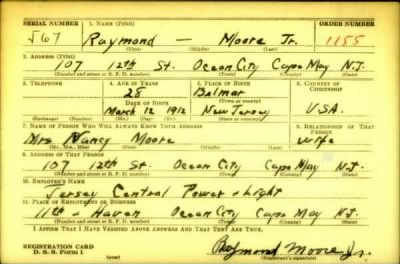 SERIAL NUMBER 1. NAME (Print) ORDER NUMBER
567 Raymond — Moore Jr. 1155
(First) (Middle) (Last)
2. ADDRESS (Print)
107 12th St. Ocean City Cape May N.J.
(Number and street or R. F. D. number) (Town) (County) (State)
3. TELEPHONE 4. AGE IN YEARS 5. PLACE OF BIRTH 6. COUNTRY OF CITIZENSHIP
28 Belmar
DATE OF BIRTH (Town or county)
March 12 1912 New Jersey U.S.A.
(Exchange) (Number) (Mo.) (Day) (Yr.) (State or country)
7. NAME OF PERSON WHO WILL ALWAYS KNOW YOUR ADDRESS 8. RELATIONSHIP OF THAT PERSON
Mrs Nancy Moore wife
(Mr., Mrs., Miss) (First) (Middle) (Last)
9. ADDRESS OF THAT PERSON
107 12th St. Ocean City Cape May N.J.
(Number and street or R. F. D. number) (Town) (County) (State)
10. EMPLOYER'S NAME
Jersey Central Power & Light
11. PLACE OF EMPLOYMENT OR BUSINESS
11th & Haven Ocean City Cape May N.J.
(Number and street or R. F. D. number) (Town) (County) (State)
I AFFIRM THAT I HAVE VERIFIED ABOVE ANSWERS AND THAT THEY ARE TRUE.
REGISTRATION CARD
D. S. S. Form 1 (over) Raymond Moore Jr.
(Registrant's signature)